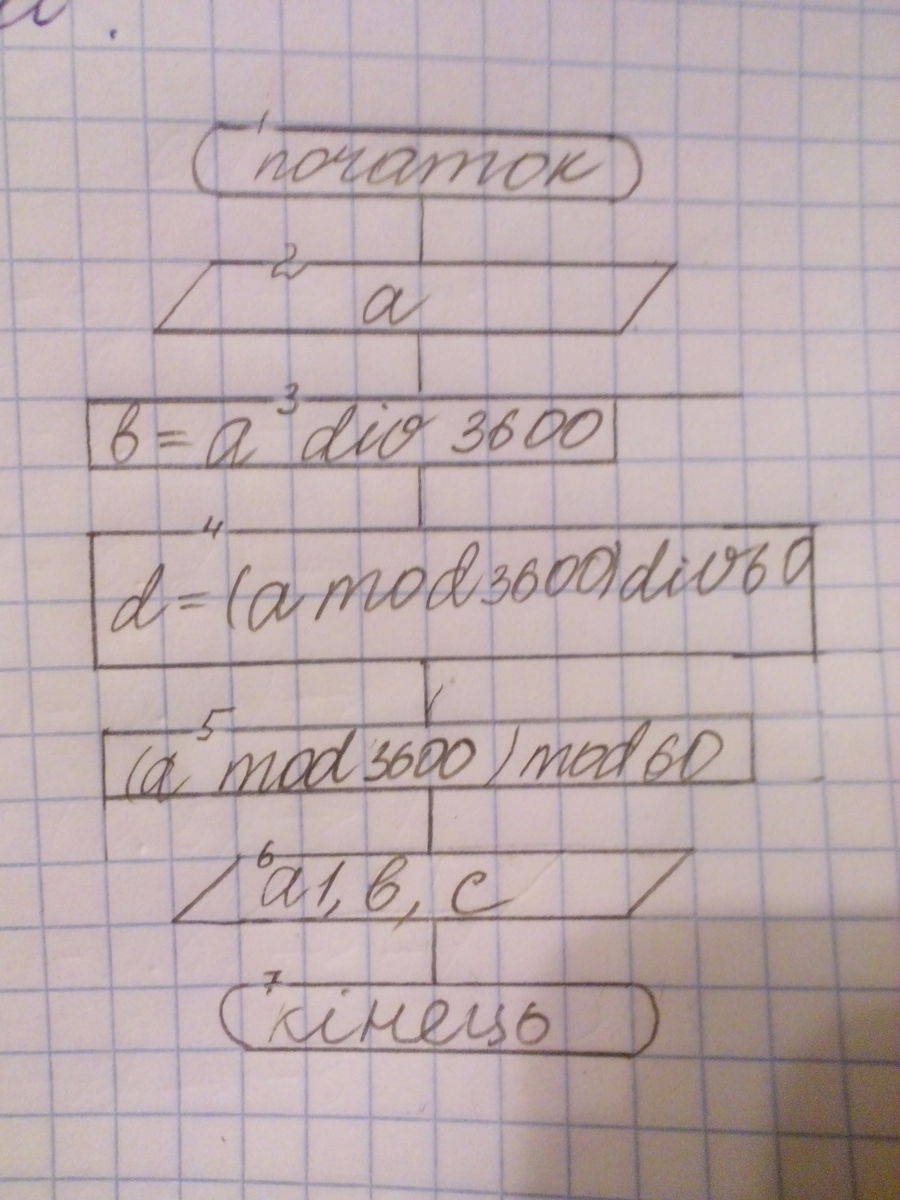 1
початок
2
a
3
в = a div 3600
4
d = (a mod 3600) div 60
5
(a mod 3600) mod 60
6
a1, в, c
7
кінець